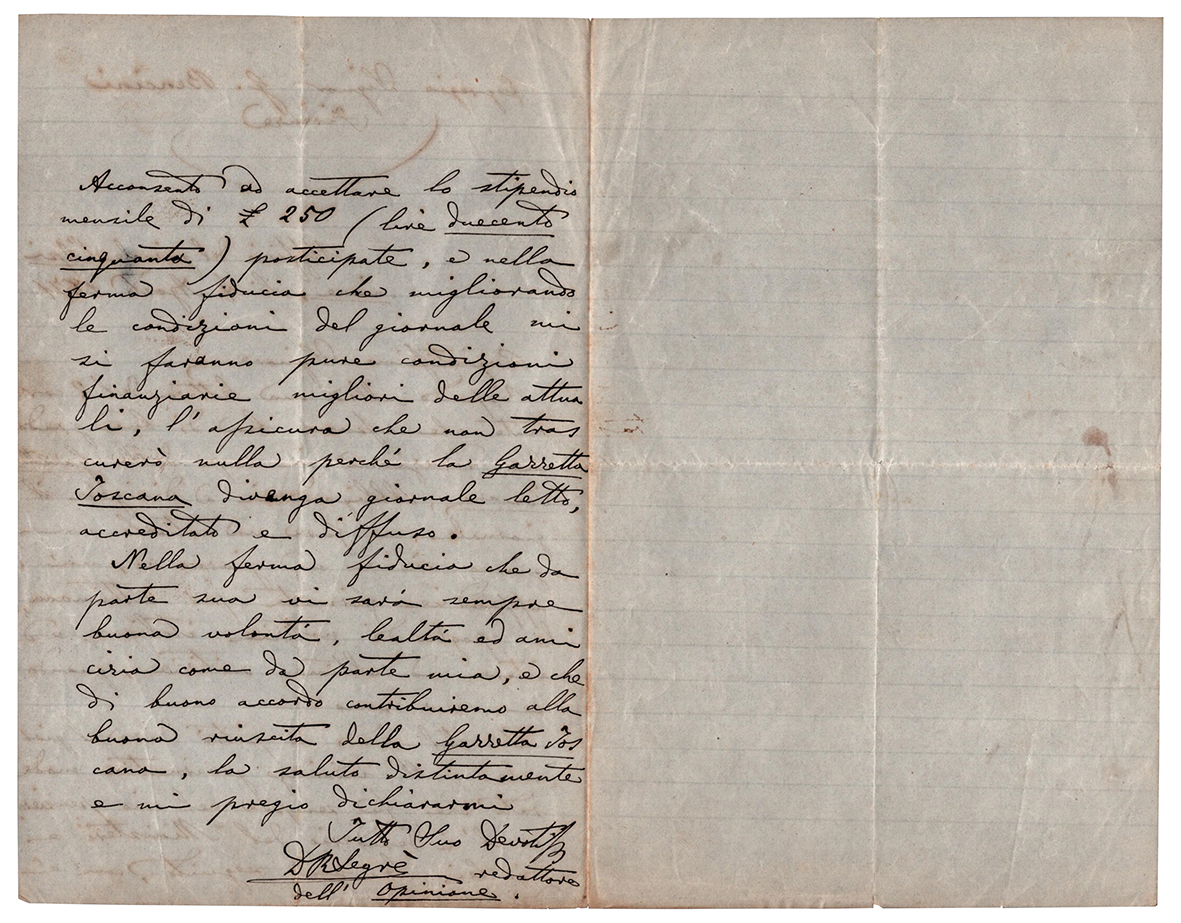 Acconsento ad accettare lo stipendio
mensile di £ 250 (lire duecento
cinquanta) posticipate, e nella
ferma fiducia che migliorando
le condizioni del giornale mi
si faranno pure condizioni
finanziarie migliori delle attua
li, l'assicura che non tras
curerò nulla perché la Gazzetta
Toscana divenga giornale letto,
accreditato e diffuso.
Nella ferma fiducia che da
parte sua vi sará sempre
buona volontá, lealtá ed ami
cizia come da parte mia, e che
di buono accordo contribuiremo alla
buona riuscita della Gazzetta Tos
cana, la saluto distintamente
e mi pregio dichiararmi
Tutto Suo Devotiss
D R Segrè redattore
dell' Opinione.